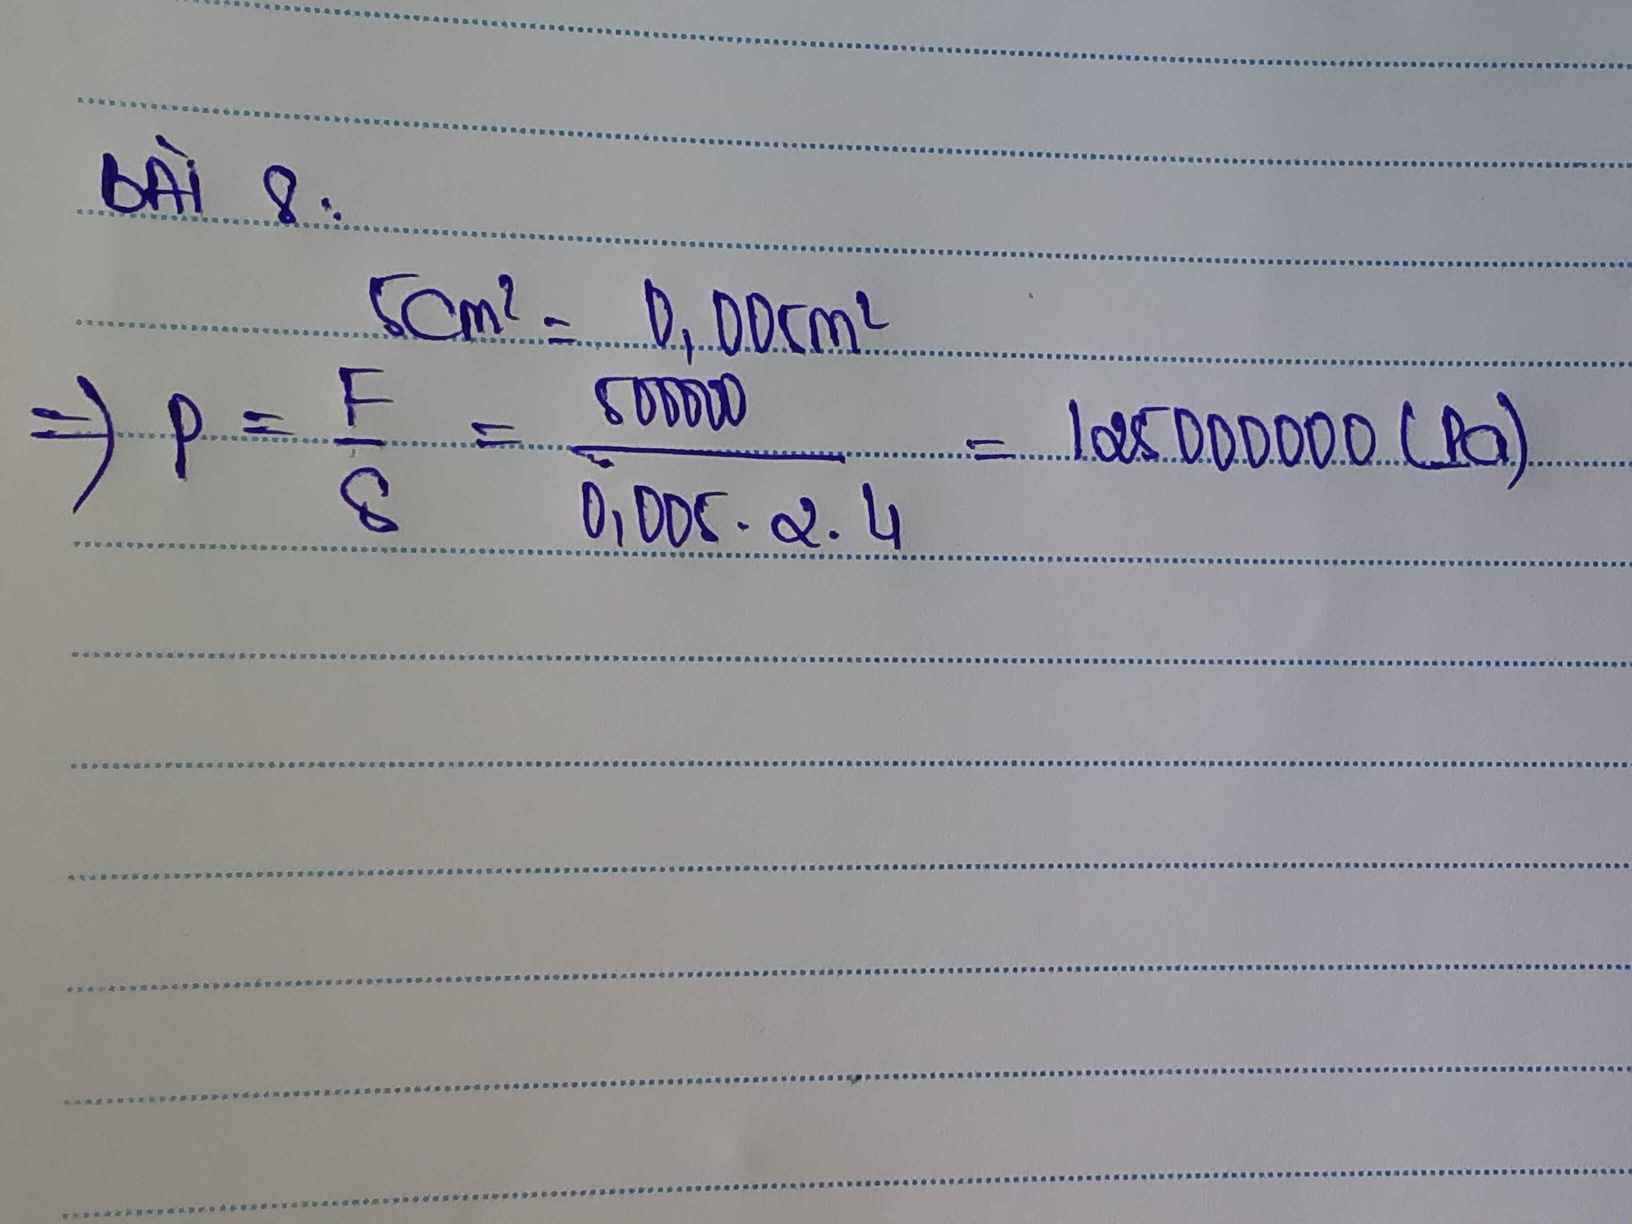 BÀI 8:
5cm² = 0,005m²
=> P = F/S = 500000/0,005.2.4 = 125000000 (Pa)